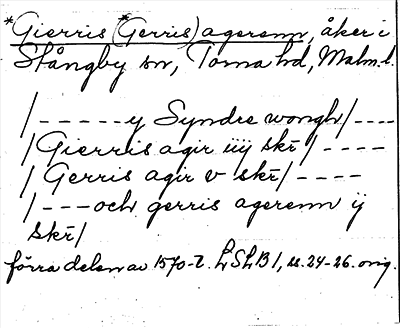 *Gierris (*Gerris) agerenn, åker i
Stångby sn, Torna hd, Malm.l.
/-----y Syndre wongh/----
/Gierris agir iiij skr/----
/Gerris agir v skr/----
/---och gerris agerenn ij
skr/
förra delen av 1570-t. LSLB1, ss. 24-26. orig.